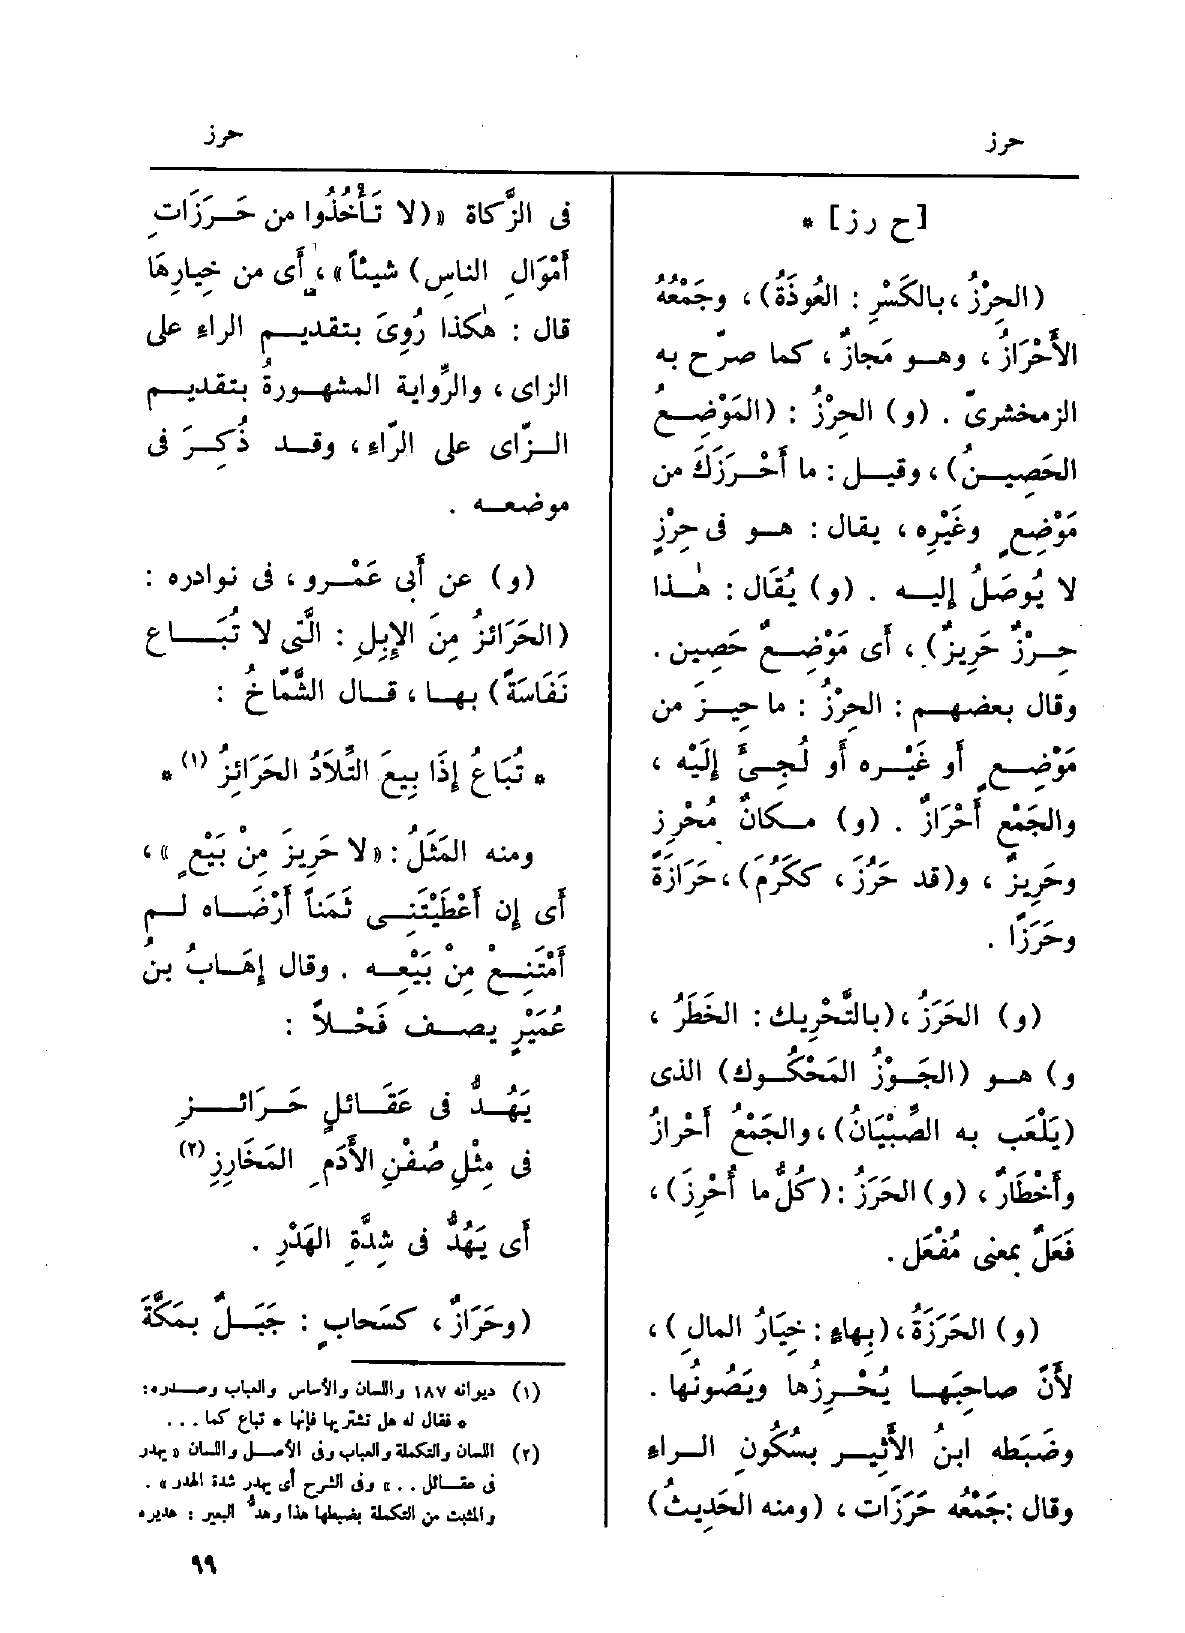 حرز
حرز
[ح رز] *
(الحِرْزُ ، بالكَسْرِ : العُوذَةُ) ، وجَمْعُهُ
الأَحْرَازُ ، وهــو مَجازٌ ، كما صرّح به
الزمخشرىّ . (و) الحِرْزُ : (المَوْضِــعُ
الحَصِيــنُ) ، وقيــل : ما أَحْــرَزَكَ من
مَوْضِعٍ وغَيْرِه ، يقال : هــو فى حِرْزٍ
لا يُوصَلُ إِليــه . (و) يُقَال : هٰــذا
حِــرْزٌ حَرِيزٌ) ، أَى مَوْضِــعٌ حَصِين .
وقال بعضهــم : الحِرْزُ : ما حِيــزَ من
مَوْضِــعٍ أَو غَيْــره أَو لُجِــئَ إِلَيْه ،
والجَمْع أَحْرَازٌ . (و) مــكانٌ مُحْرِز
وحَرِيزٌ ، و(قد حَرُزَ ، ككَرُمَ) ، حَرَازَةً
وحَرَزًا .
(و) الحَرَزُ ، (بالتَّحْرِيك : الخَطَرُ ،
و) هــو (الجَــوْزُ المَحْكُوك) الذى
(يَلْعَب به الصِّبْيَانُ) ، والجَمْعُ أَحْرازٌ
وأَخْطَارٌ ، (و) الحَرَزُ : (كُلُّ ما أُحْرِزَ) ،
فَعَلٌ بمعنى مُفْعَل .
(و) الحَرَزَةُ ، (بِهاءٍ : خِيَارُ المالِ) ،
لأَنّ صاحِبَهــا يُحْــرِزُها ويَصُونُها .
وضَبَطه ابنُ الأَثِيــر بسُكُونِ الــراء
وقال : جَمْعُه حَرَزَات ، (ومنه الحَدِيثُ)
فى الزَّكاة «(لا تَأْخُذُوا من حَــرَزَاتِ
أَمْوَالِ الناسِ) شيئاً» ، أَى من خِيارِهَا
قال : هٰكذا رُوِىَ بتقديــم الراءِ على
الزاى ، والرِّواية المشهــورةُ بتقديــم
الــزّاى على الرّاءِ ، وقــد ذُكِــرَ فى
موضعــه .
(و) عن أَبى عَمْــرو ، فى نوادره :
(الحَرَائزُ مِنَ الإِبِلِ : الَّتى لا تُبَــاع
نَفَاسَةً) بهــا ، قــال الشَّمّاخُ :
* تُبَاعُ إِذَا بِيعَ التِّلَادُ الحَرَائِزُ (١) *
ومنه المَثَلُ : «لا حَرِيزَ مِنْ بَيْعٍ» ،
أَى إِن أَعْطَيْتَنِــى ثَمَناً أَرْضَــاه لــم
أَمْتَنِــعْ مِنْ بَيْعِــه . وقال إِهَــابُ بنُ
عُمَيْرٍ يصــف فَحْــلاً :
يَهُــدُّ فى عَقَــائلٍ حَــرائــزِ
فى مِثْلِ صُفْنِ الأَدَمِ المَخَارِزِ (٢)
أَى يَهُدُّ فى شِدَّةِ الهَدْرِ .
(وحَرَازٌ ، كسَحابٍ : جَبَــلٌ بمَكَّةَ
(١) ديوانه ١٨٧ واللسان والأساس والعباب وصــدره :
* فقال له هل تشتريها فإنها * تباع كما . . .
(٢) اللسان والتكملة والعباب وفى الأصــل واللسان «يهدر
فى عقــائل . . » وفى الشرح أى يهدر شدة الهدر» .
والمثبت من التكملة بضبطها هذا وهدُّ البعير : هديره
٩٩